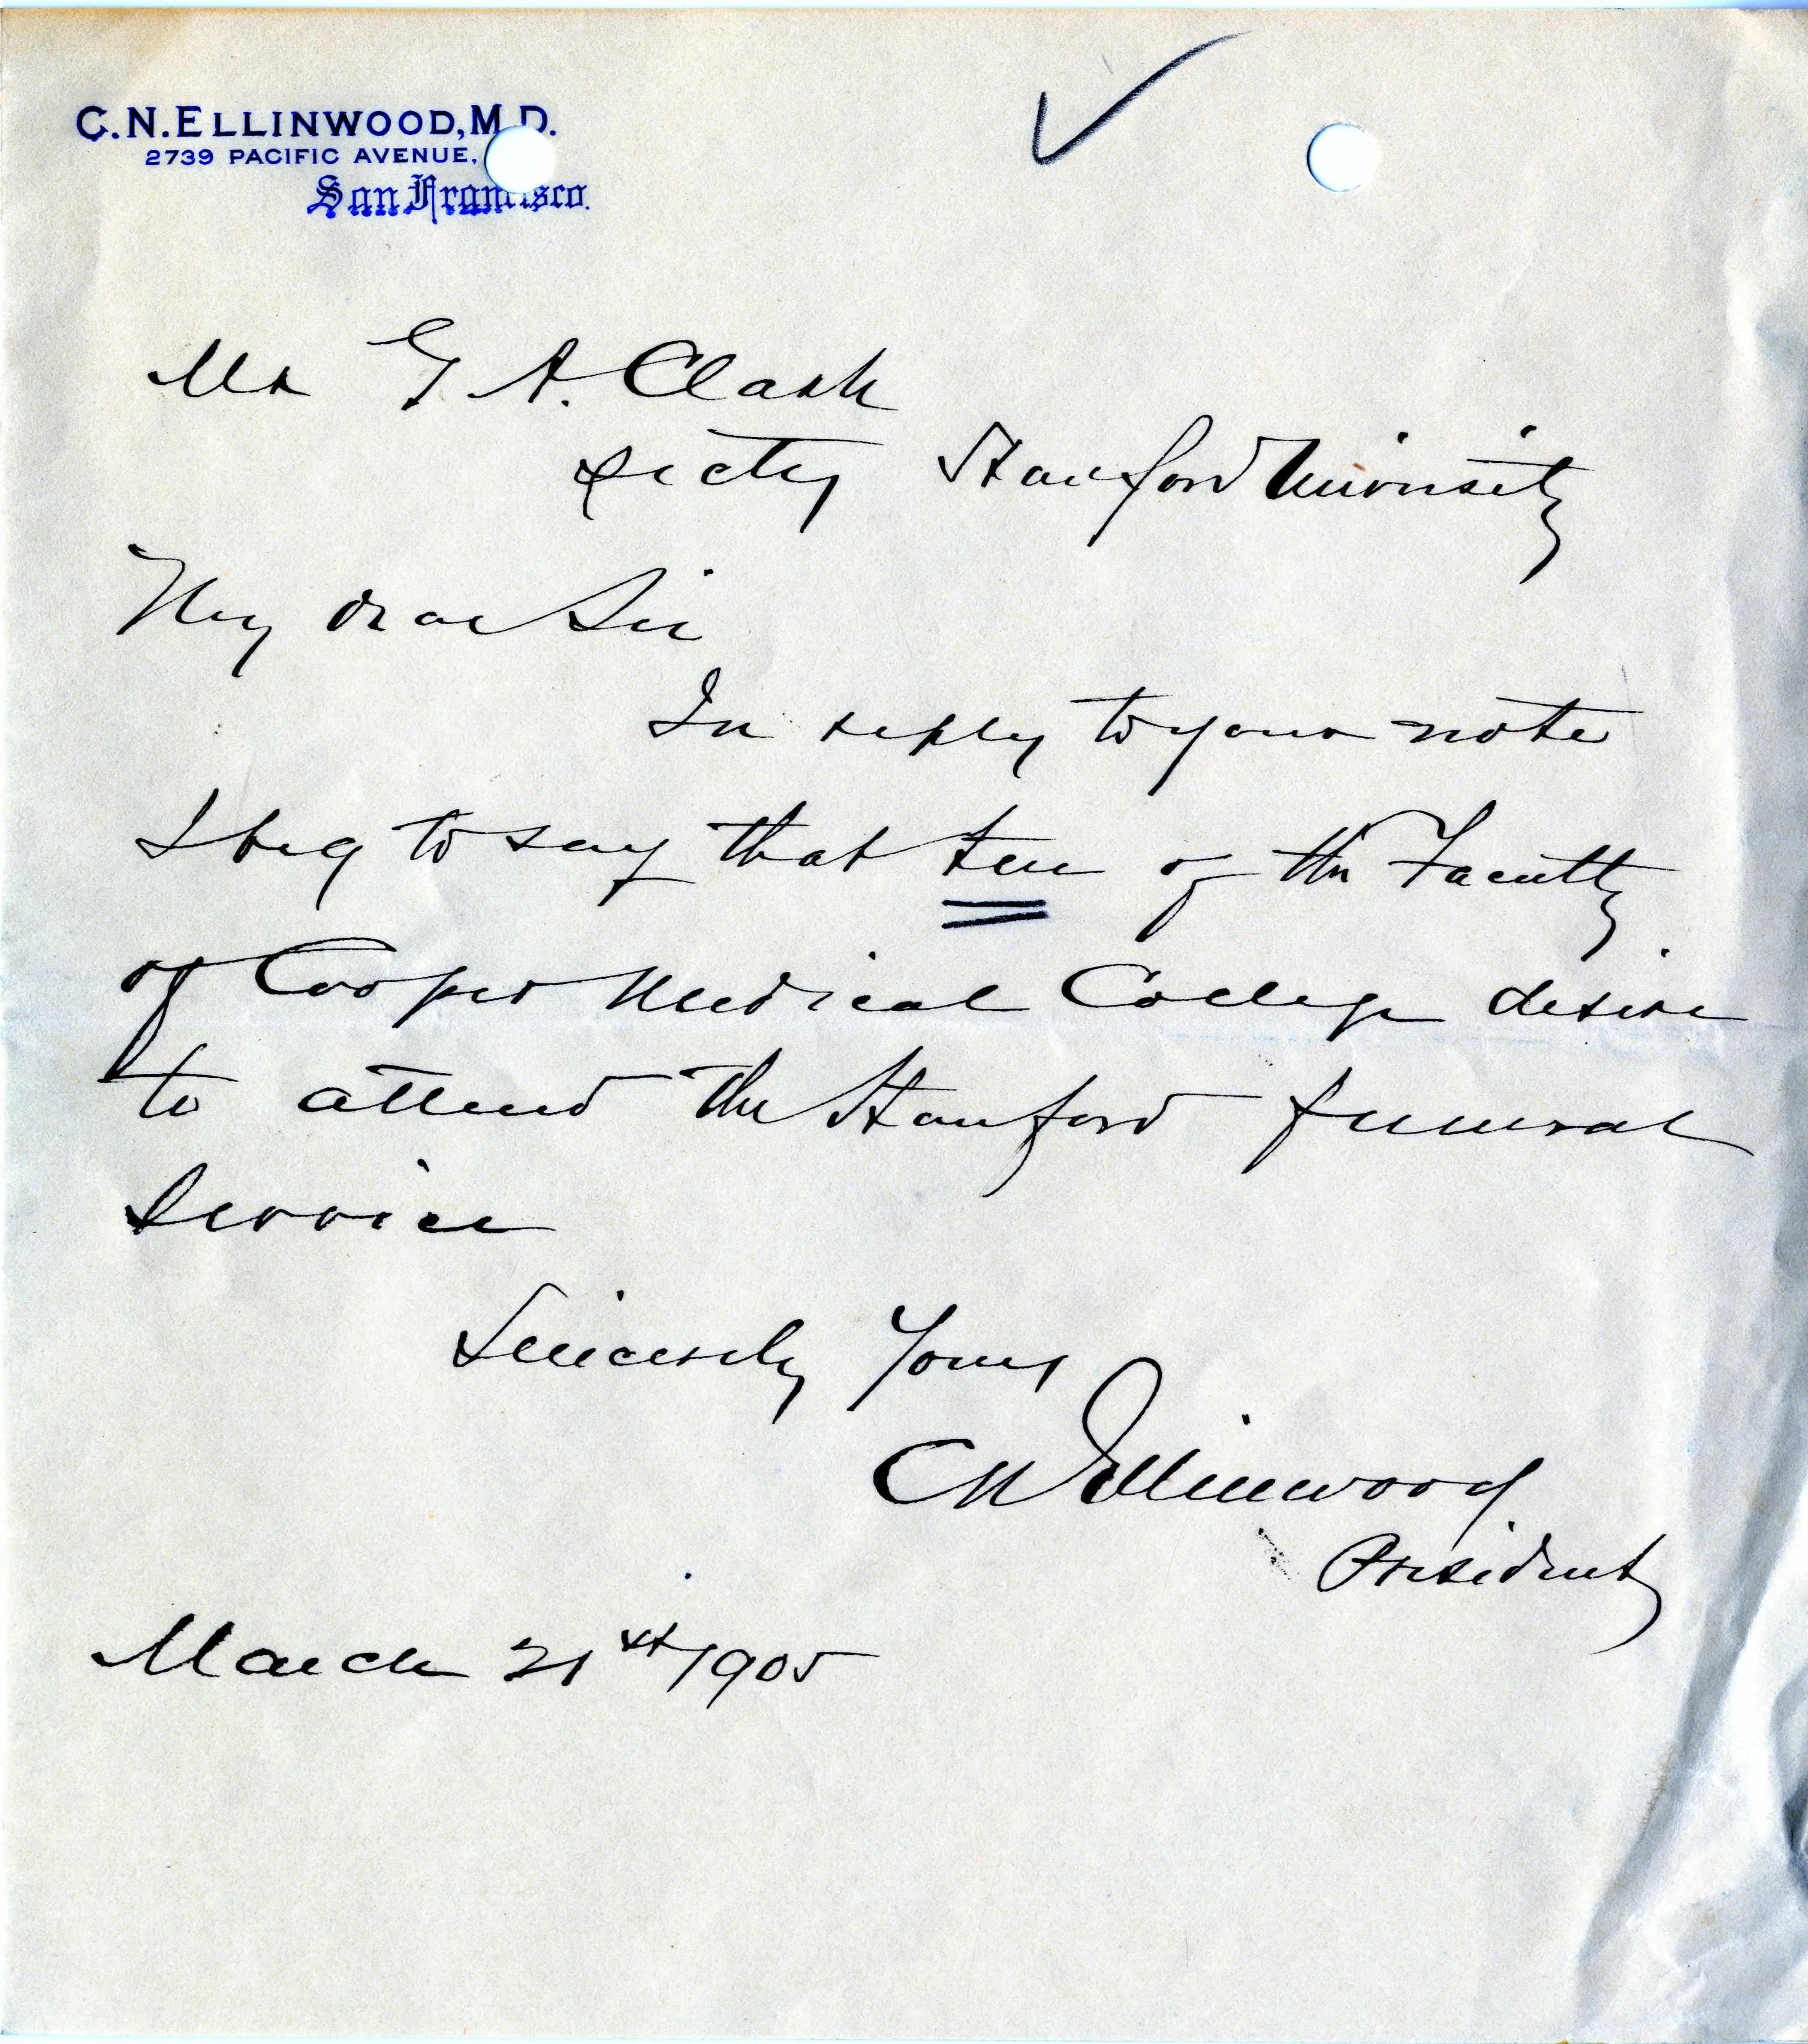 C.N. ELLINWOOD, M.D.
2739 PACIFIC AVENUE,
San Francisco.
Mr G A. Clark
Secty Stanford University
My dear Sir
In reply to your note
I beg to say that ten of the Faculty
of Cooper Medical College desire
to attend the Stanford funeral
service
Sincerely Yours
CN Ellinwood
President
March 21st 1905